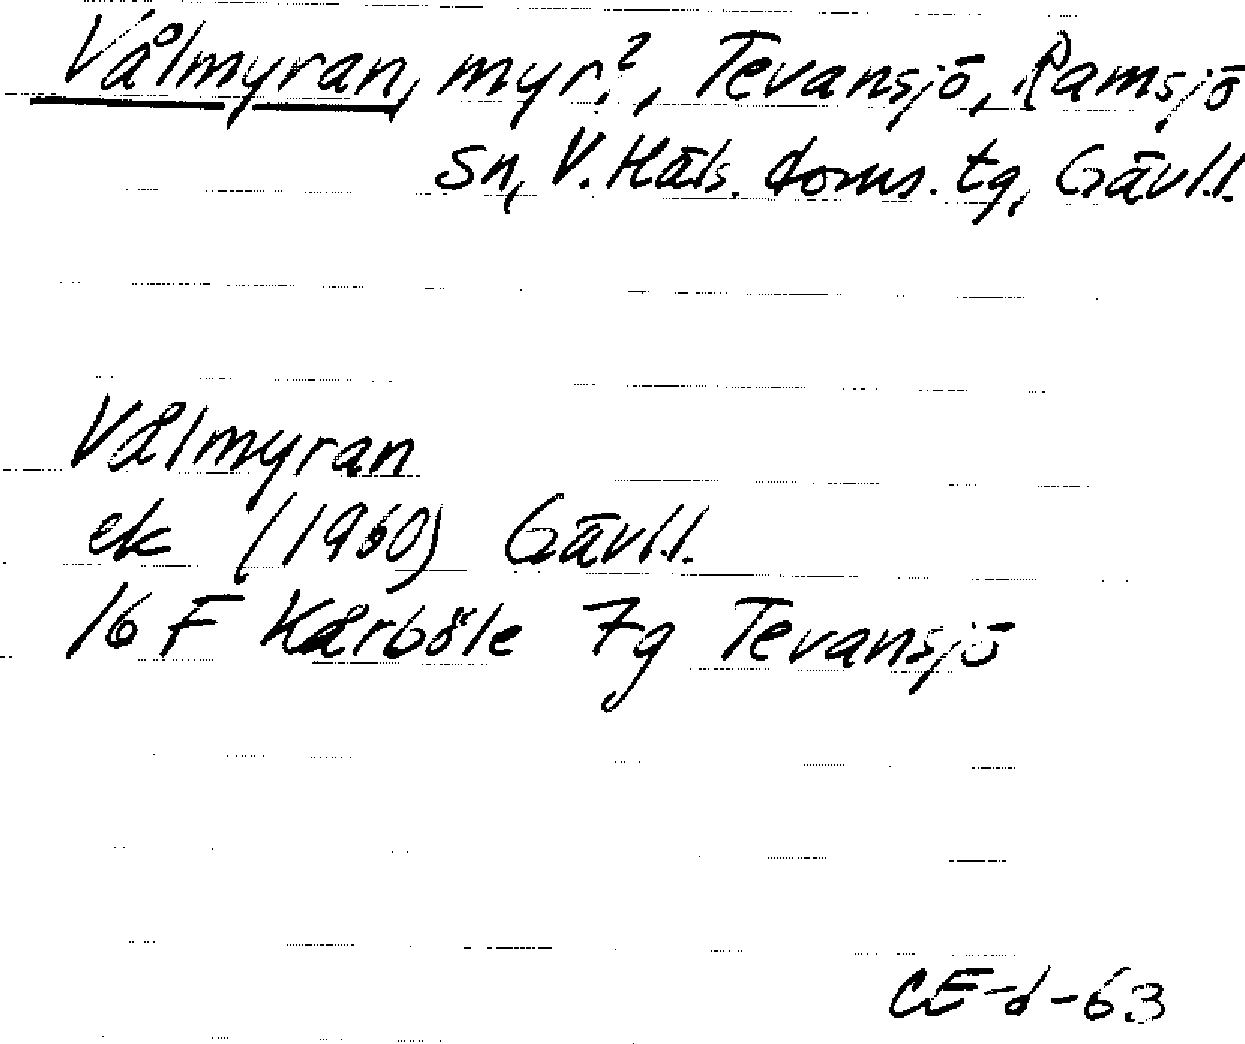 Vålmyran, myr?, Tevansjö, Ramsjö
sn, V. Häls. doms. tg, Gävl.l.
Vålmyran
ek (1960) Gävl.l.
16 F Kårböle 7g Tevansjö
CE-d-63